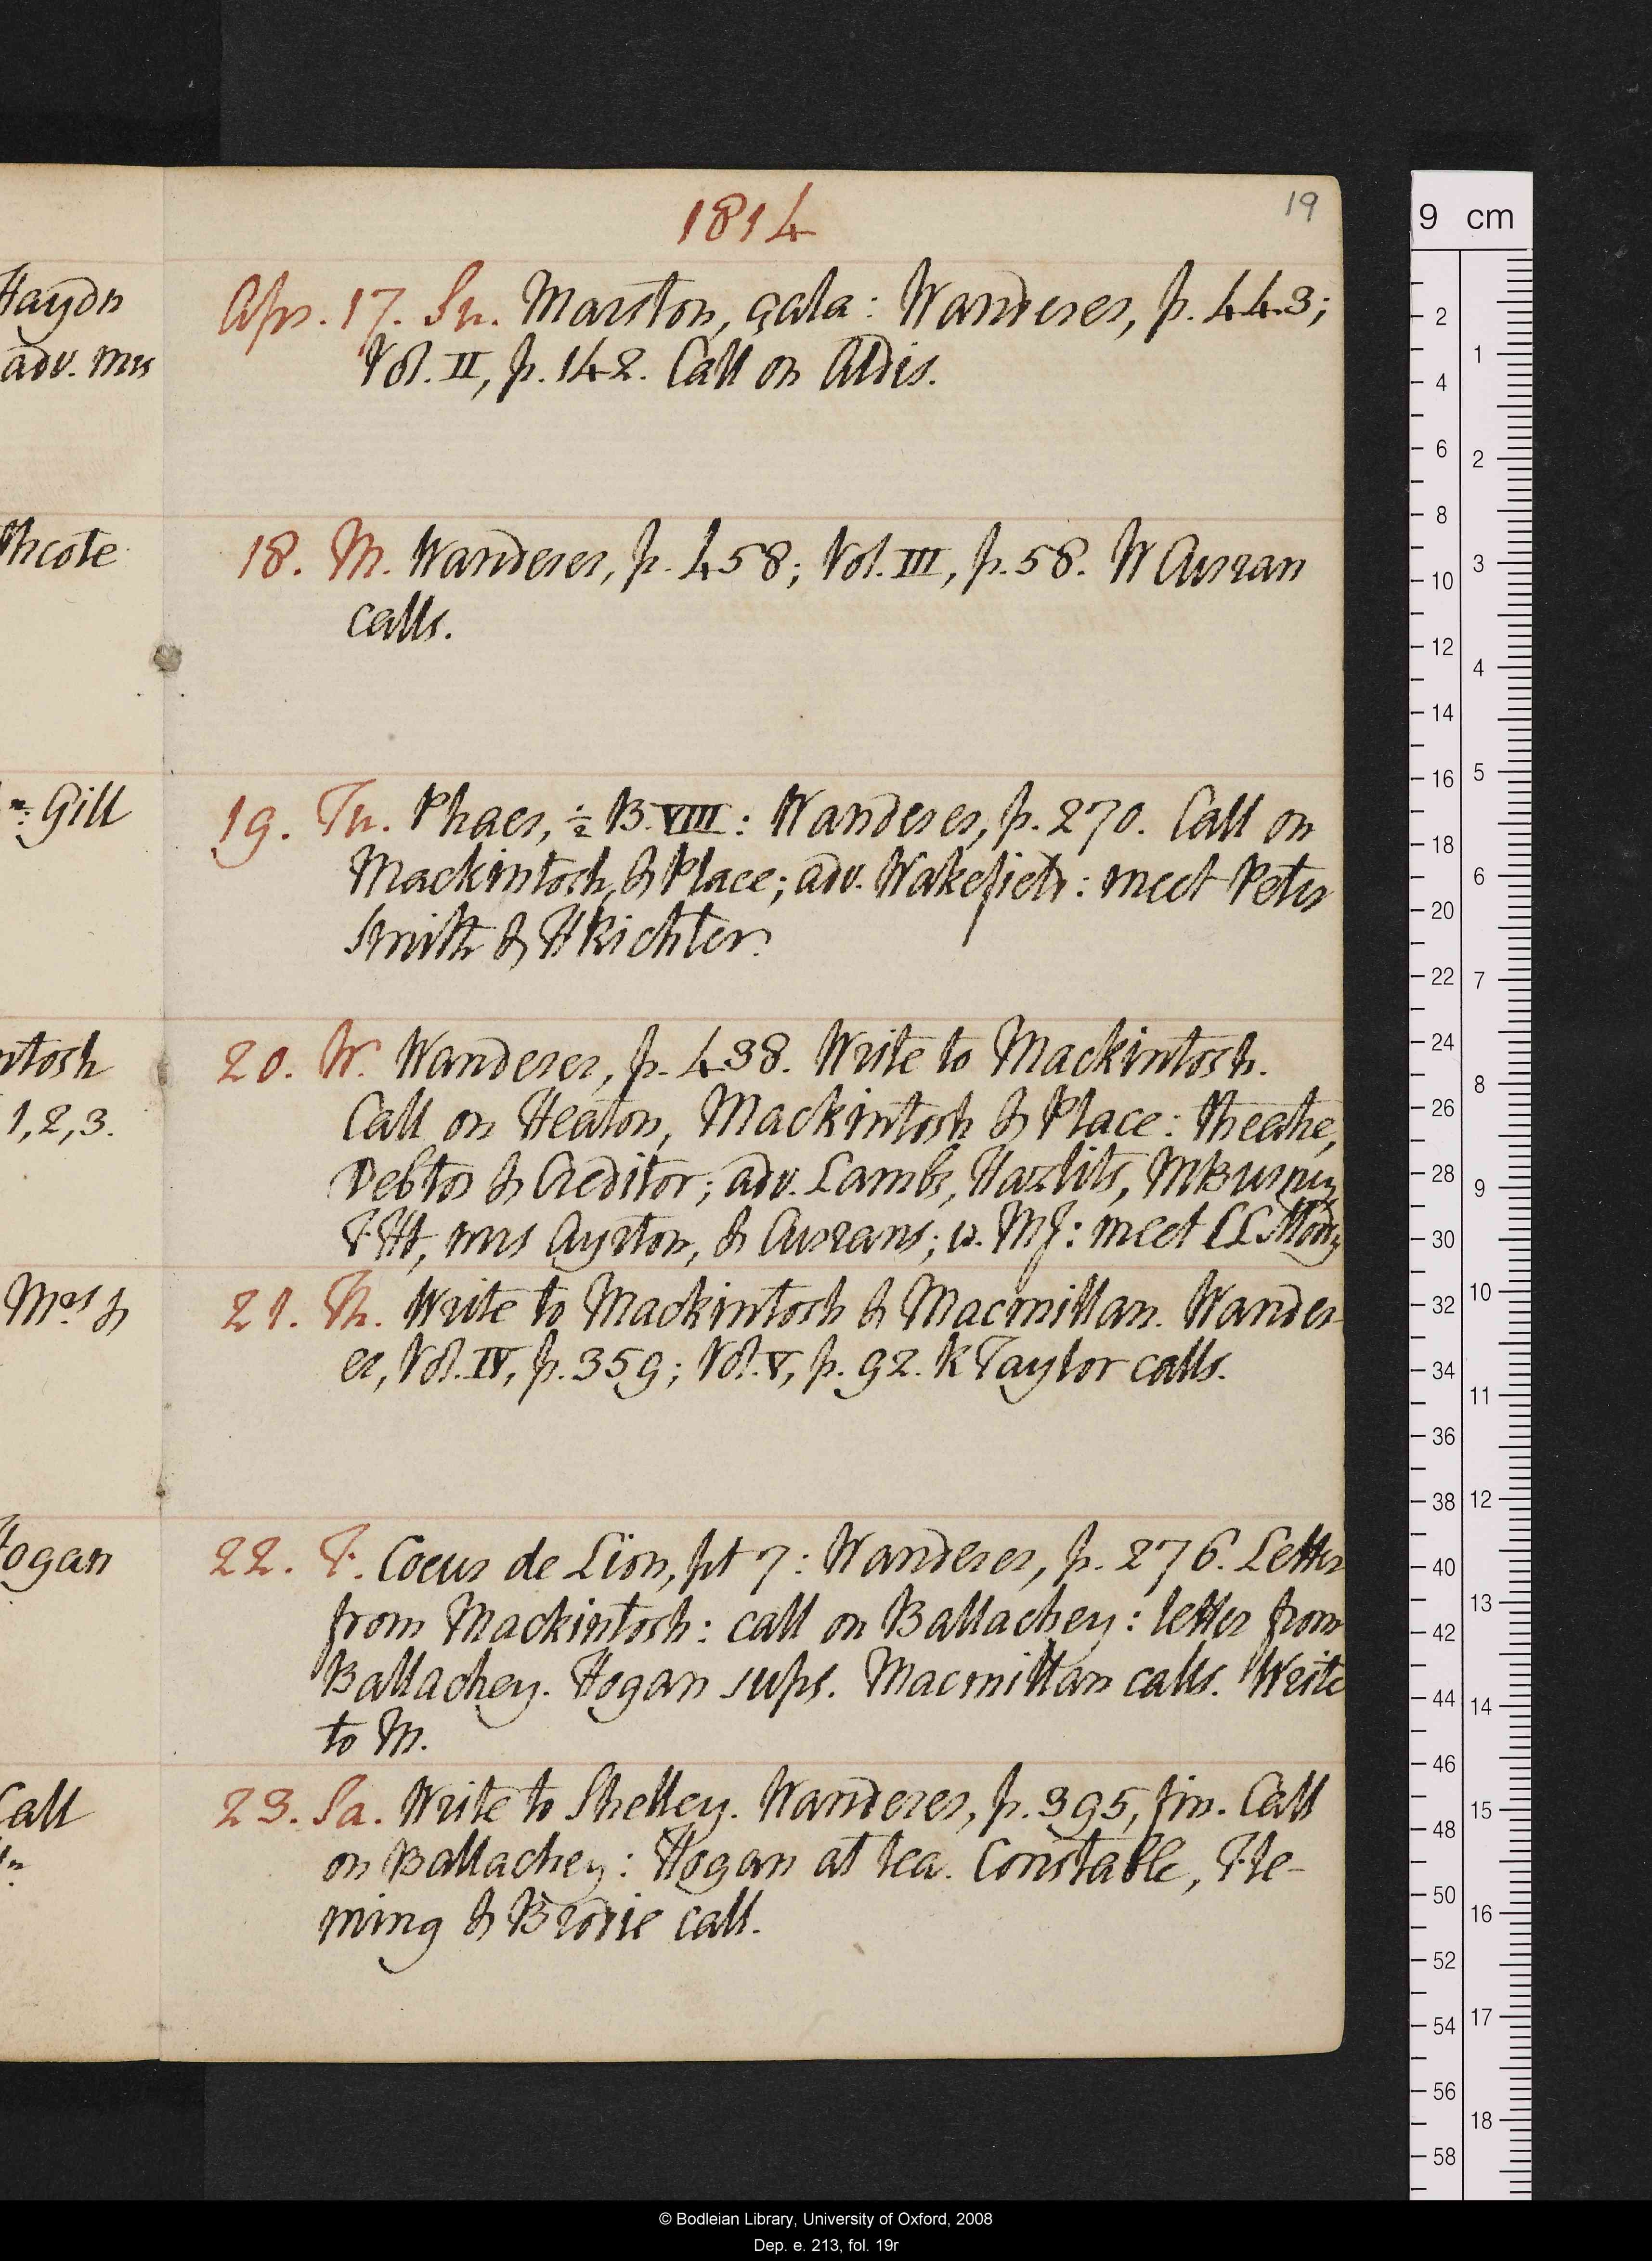 1814
19
Haydn
adv. mrs
Apr. 17. Su. Marston, çala: Wanderer, p. 443;
Vol. II, p. 142. Call on Aldis.
thcote
18. M. Wanderer, p. 458; Vol. III, p. 58. W Curran
calls.
Gill
19. Tu. Phaer, ½ B. VIII: Wanderer, p. 270. Call on
Mackintosh, & Place; adv. Wakefield: meet Peter
Smith & H Richter.
ntosh
1, 2, 3.
20. W. Wanderer, p. 438. Write to Mackintosh.
Call on Heaton, Mackintosh & Place: theatre,
Debtor & Creditor; adv. Lambs, Hazlits, M Burney
Ayrton, & Currans; MJ: meet
Mrs &
21. Th. Write to Mackintosh & Macmillan. Wander-
er, Vol. IV, p. 359; Vol. V, p. 92. R Taylor calls.
Hogan
22. F. Coeur de Lion, pt 7: Wanderer, p. 276. Letter
from Mackintosh: call on Ballachey: letter from
Ballachey. Hogan sups. Macmillan calls. Write
to M.
Call
23. Sa. Write to Shelley. Wanderer, p. 395, fin. Call
on Ballachey: Hogan at tea. Constable, Fle-
ming & Brodie call.
9 cm
2
4
6
8
10
12
14
16
18
20
22
24
26
28
30
32
34
36
38
40
42
44
46
48
50
52
54
56
58
1
2
3
4
5
6
7
8
9
10
11
12
13
14
15
16
17
18
© Bodleian Library, University of Oxford, 2008
Dep. e. 213, fol. 19r